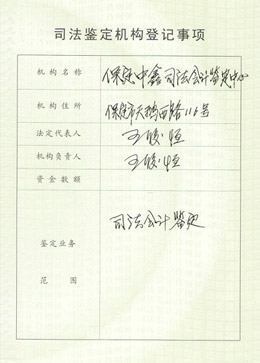 司法鉴定机构登记事项
机构名称 保定中鑫司法会计鉴定中心
机构住所 保定市天鹅西路116号
法定代表人 王俊恒
机构负责人 王俊恒
资金数额
司法会计鉴定
鉴定业务
范围